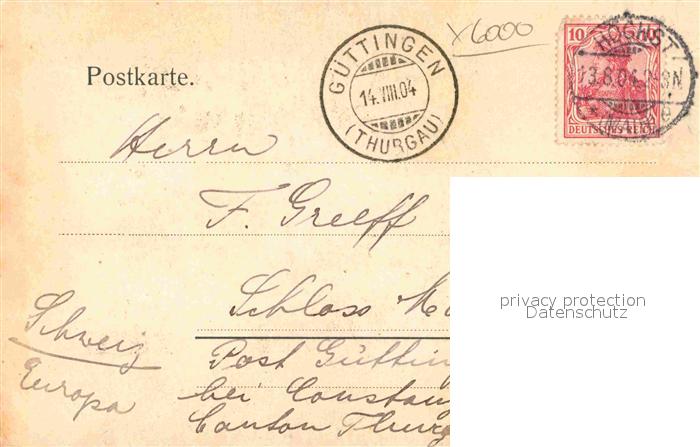 x6000
GÜTTINGEN
14.VIII.04
(THURGAU)
10
HÖCHST
13.8.04.
DEUTSCHES REICH
Postkarte.
Herrn
F. Greeff
Schloss
Post Gütting
bei Constan
Canton Thurg
Schweiz
Europa
privacy protection
Datenschutz